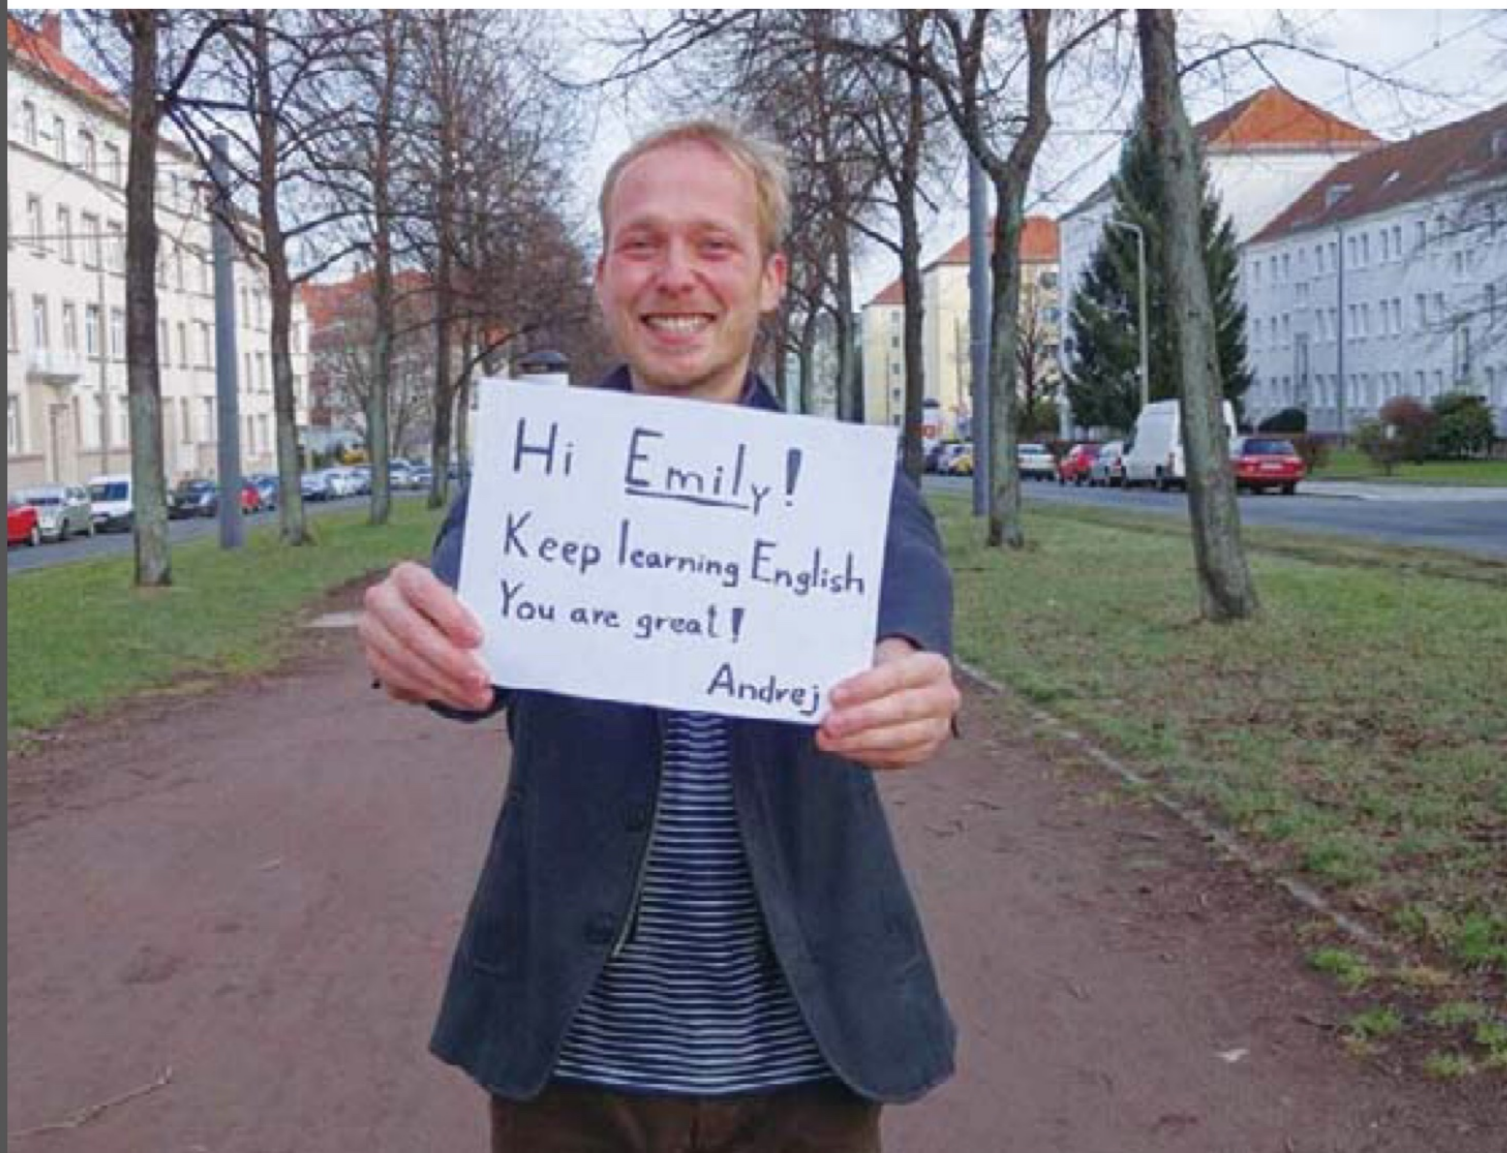 Hi Emily!
Keep learning English
You are great!
Andrej